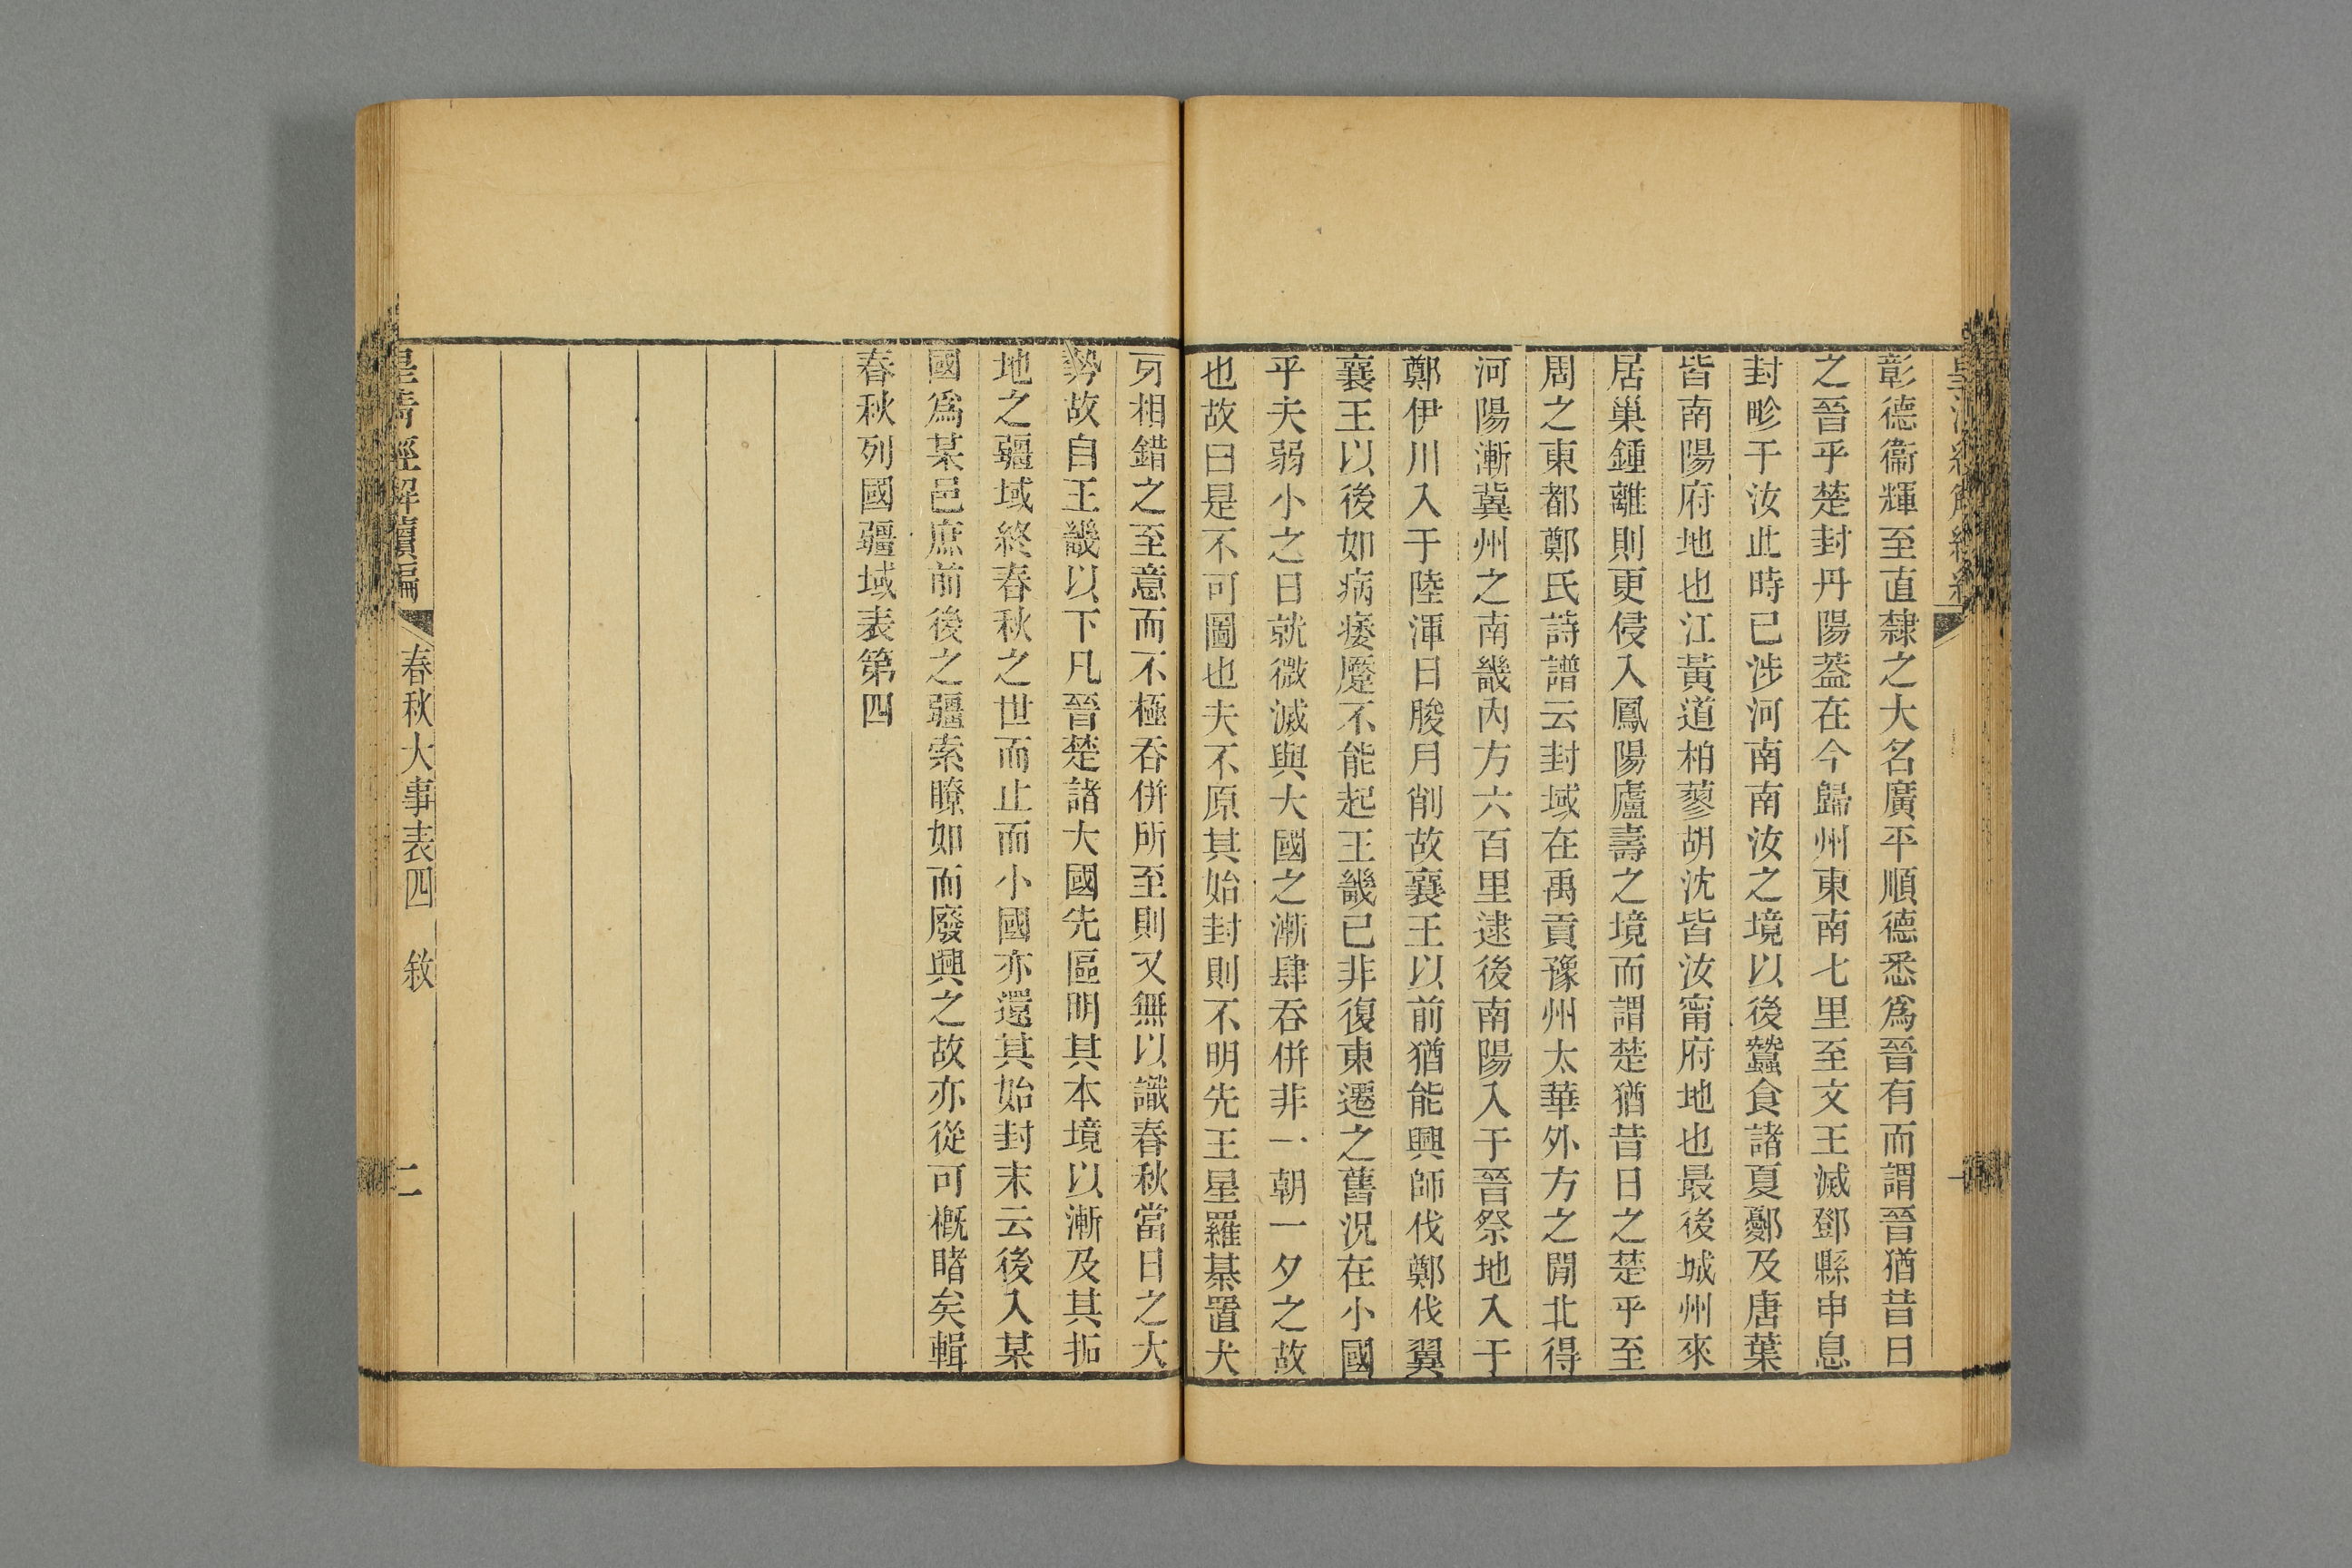 彰德衞輝至直隸之大名廣平順德悉爲晉有而謂晉猶昔日
之晉乎楚封丹陽葢在今歸州東南七里至文王滅鄧縣申息
封畛于汝此時已涉河南南汝之境以後蠶食諸夏鄾及唐葉
皆南陽府地也江黃道柏蓼胡沈皆汝甯府地也最後城州來
居巢鍾離則更侵入鳳陽廬壽之境而謂楚猶昔日之楚乎至
周之東都鄭氏詩譜云封域在禹貢豫州太華外方之閒北得
河陽漸冀州之南畿內方六百里逮後南陽入于晉祭地入于
鄭伊川入于陸渾日朘月削故襄王以前猶能興師伐鄭伐翼
襄王以後如病痿蹷不能起王畿已非復東遷之舊況在小國
乎夫弱小之日就微滅與大國之漸肆吞併非一朝一夕之故
也故曰是不可圖也夫不原其始封則不明先王星羅棊置犬
牙相錯之至意而不極吞併所至則又無以識春秋當日之大
勢故自王畿以下凡晉楚諸大國先區明其本境以漸及其拓
地之疆域終春秋之世而止而小國亦還其始封末云後入某
國爲某邑庶前後之疆索瞭如而廢興之故亦從可槪睹矣輯
春秋列國疆域表第四
皇清經解續編 春秋大事表四 敘 二